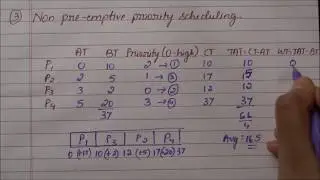 ③ Non pre-emptive priority scheduling.
AT BT Priority (0-high) CT TAT=CT-AT WT=TAT-BT
P1 0 10 2 → ③ 10 10 0
P2 2 5 1 → ② 17 15
P3 3 2 0 → ① 12
P4 5 20 3 → ④ 37 37
37
4
P1 P3 P2 P4
0 (+10) 10 (+2) 12 (+5) 17 (+20) 37
Avg = 16.5